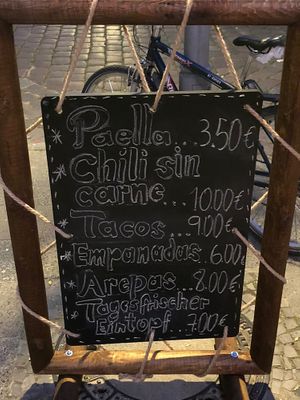 * Paella... 3.50€
* Chili sin
carne... 10.00€
* Tacos... 9.00€
* Empanadas.. 6.00€
* Arepas... 8.00€
* Tagesfrischer
Eintopf.. 7.00€